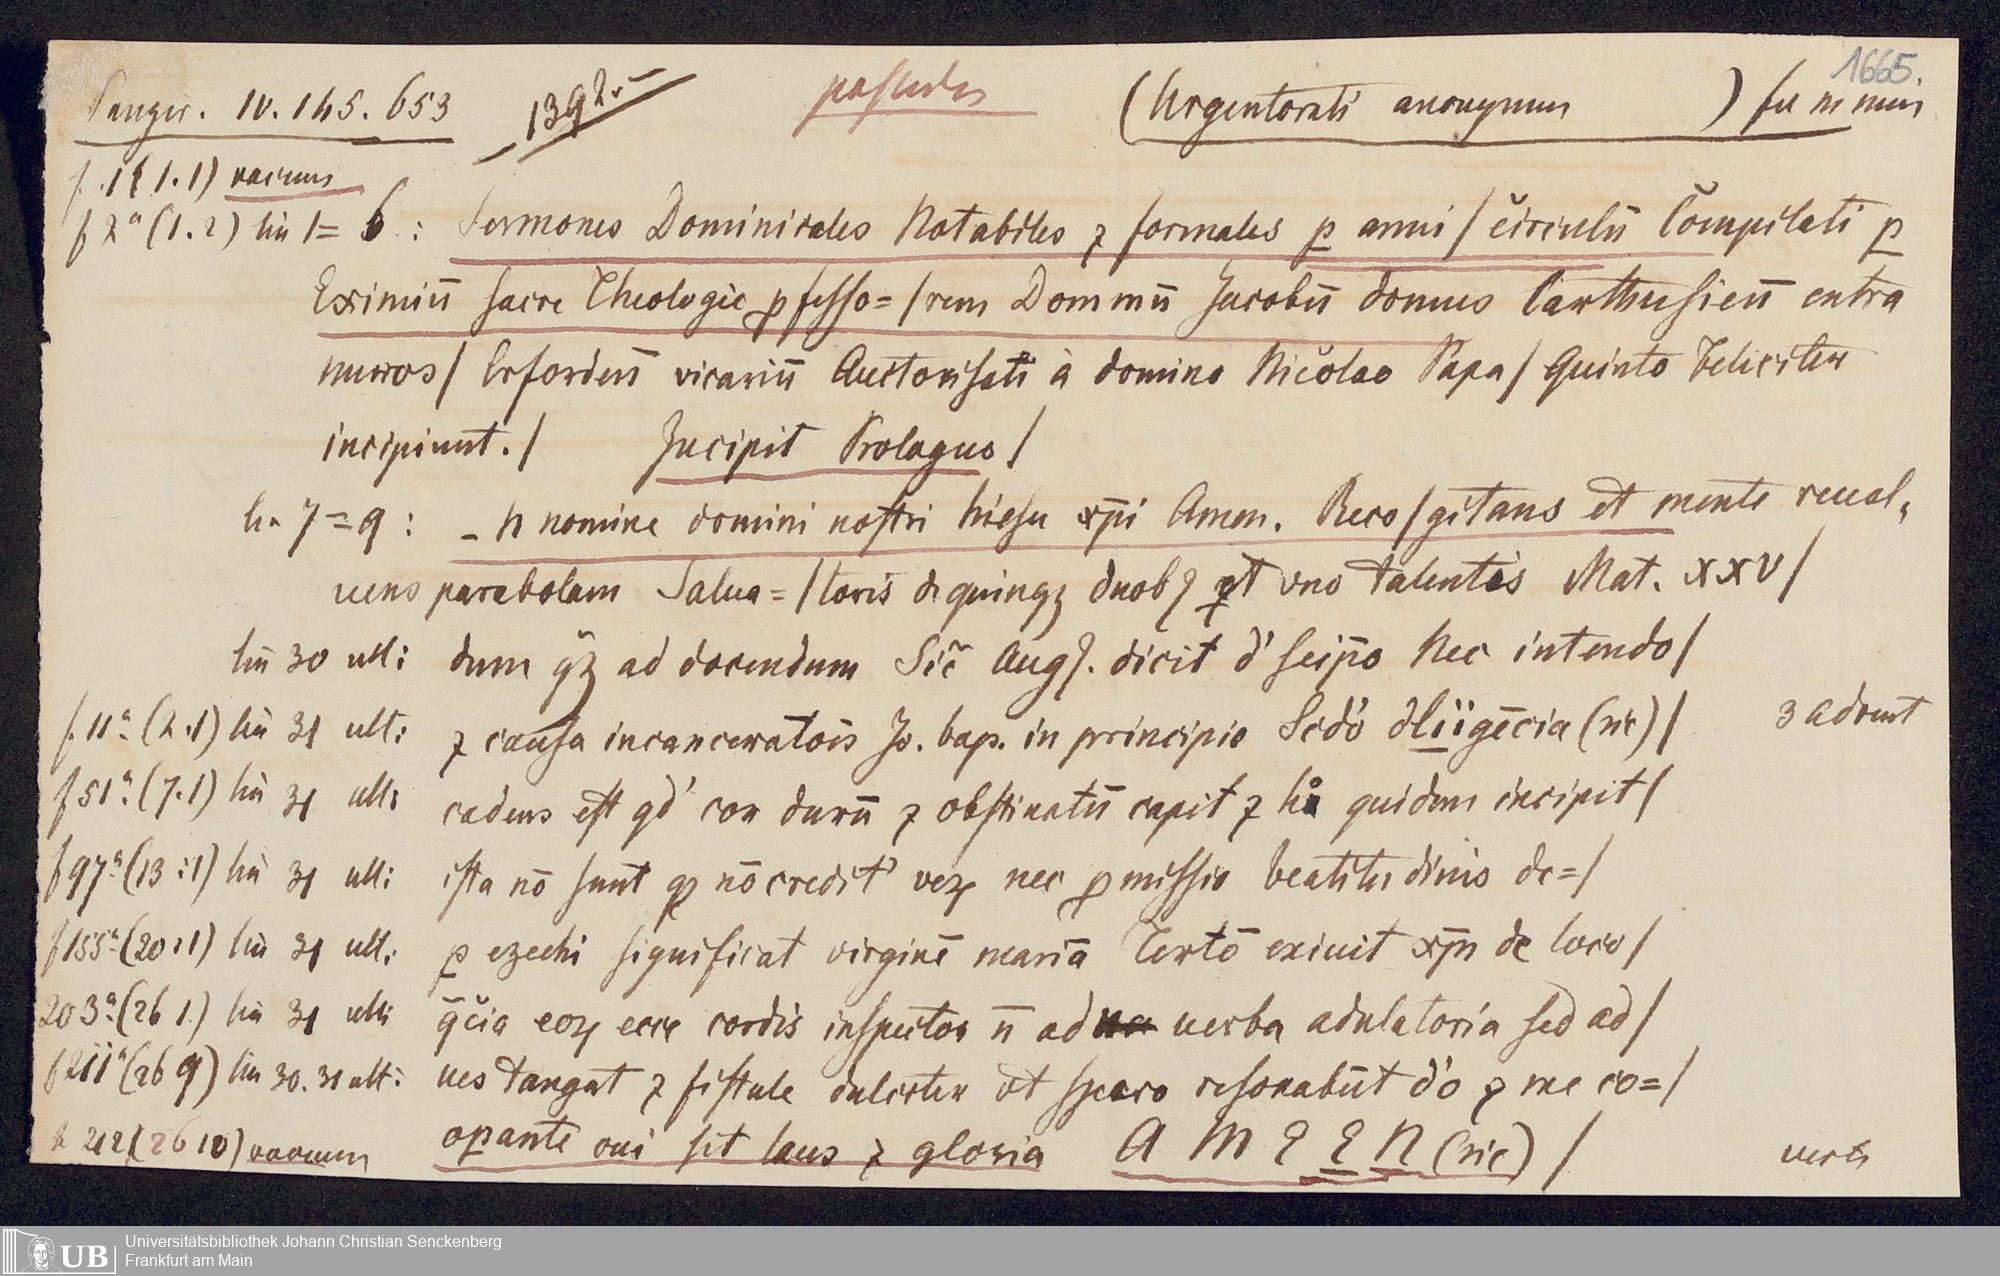 1665.
Panzer. IV. 145. 653 1392. (Argentorati anonymus )
f. 1 (1.1) vacuus
f 2ᵃ (1.2) lin 1= 6 : Sermones Dominicales Notabiles ⁊ formales ꝑ anni / circulū Cōmpilati ꝑ
Eximiū sacre Theologie ꝓfesso= / rem Dominū Jacobū domus Carthusień extra
muros / Erforden̄ vicariū Auctorisati à domino Nicolao Papa / Quinto Feliciter
incipiunt. / Incipit Prologus /
lin 7 = 9 : _ N nomine domini nostri hiesu xp̄i Amen. Reco / gitans et mente reuol-
uens parabolam Salua= / toris de quinqꝫ duobꝫ et vno talentis Mat. XXV /
lin 30 ult: dum qꝫ ad docendum Sic̄ Augꝰ. dicit d' seip̄o Nec intendo /
f. 11ᵃ. (2.1) lin 31 ult: ⁊ causa incarceratōis Jo. bap. in principio Scd̄o dliigēcia (sic) / 3 advent
f 51ᵃ. (7.1) lin 31 ult: cadens est qd' cor durū ⁊ obstinatū capit ⁊ quidem incipit /
f 97ᵃ (13.1) lin 31 ult: ista nō sunt nō credit' nec ꝓmissio beatitudinis de= /
f 155ᵃ (20.1) lin 31 ult: ꝑ ezechi significat virginē mariā Tertō exiuit xp̄s de loco /
203ᵃ. (26 1.) lin 31 ult: eoꝝ ecce cordis inspector n̄ ad uerba adulatoria sed ad /
f 211ᵃ (26 9) lin 30. 31 ult: ues tangat ⁊ fistule dulciter vt spero resonabūt d'o ꝑ me co= /
f 212 (26 10) vacuum oꝑante cui sit laus ⁊ gloria A M E E N (sic) / verte
UB Universitätsbibliothek Johann Christian Senckenberg
Frankfurt am Main